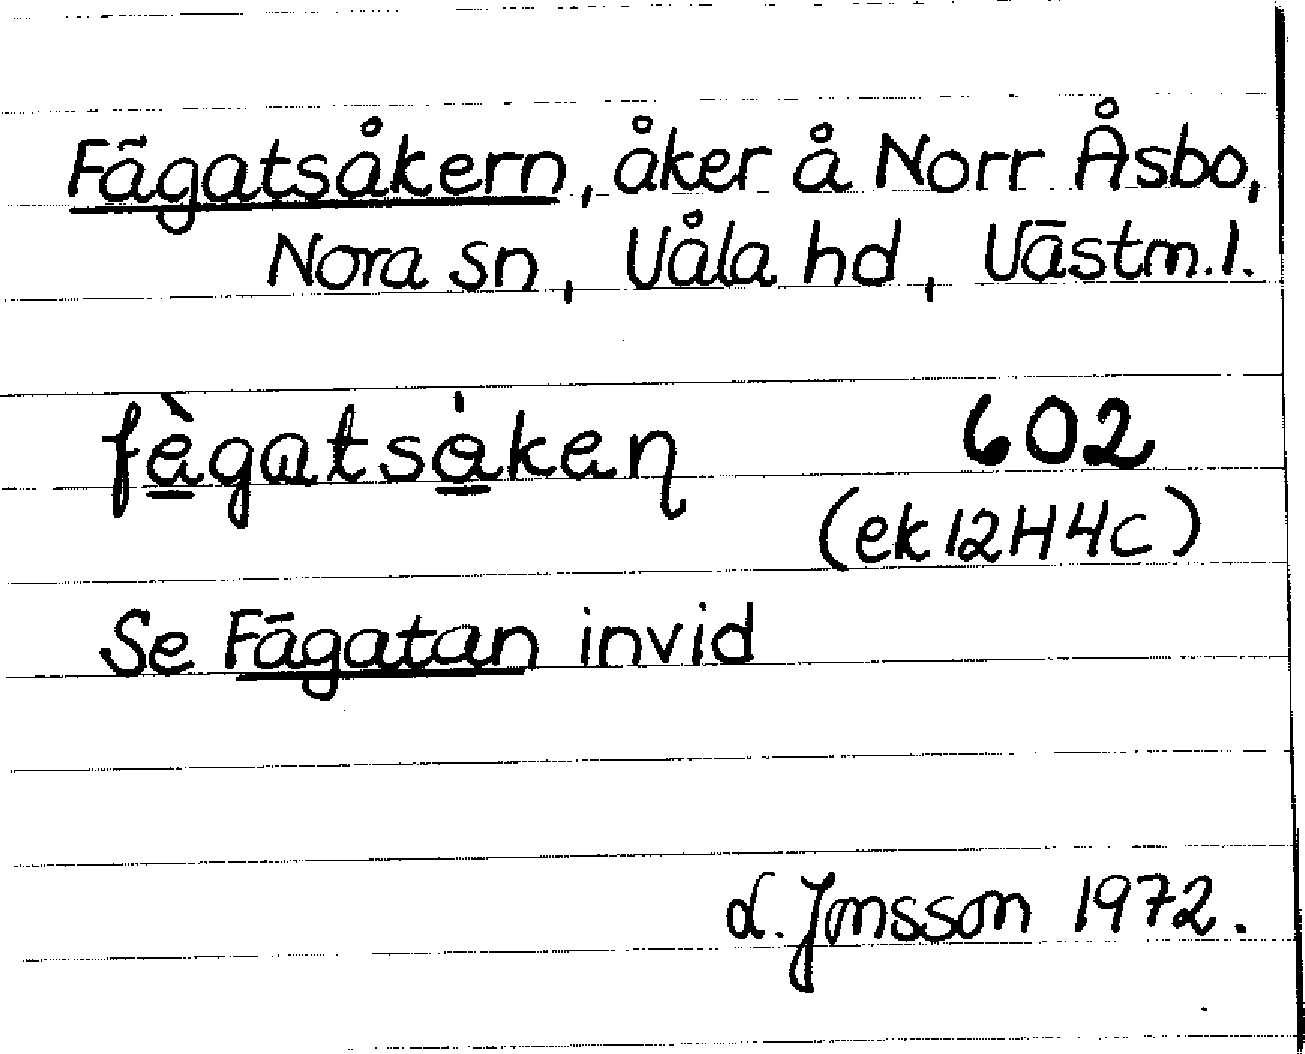 Fägatsåkern, åker å Norr Åsbo,
Nora sn, Våla hd, Västm.l.
602
(ek 12H4c)
Se Fägatan invid
L. Jonsson 1972.